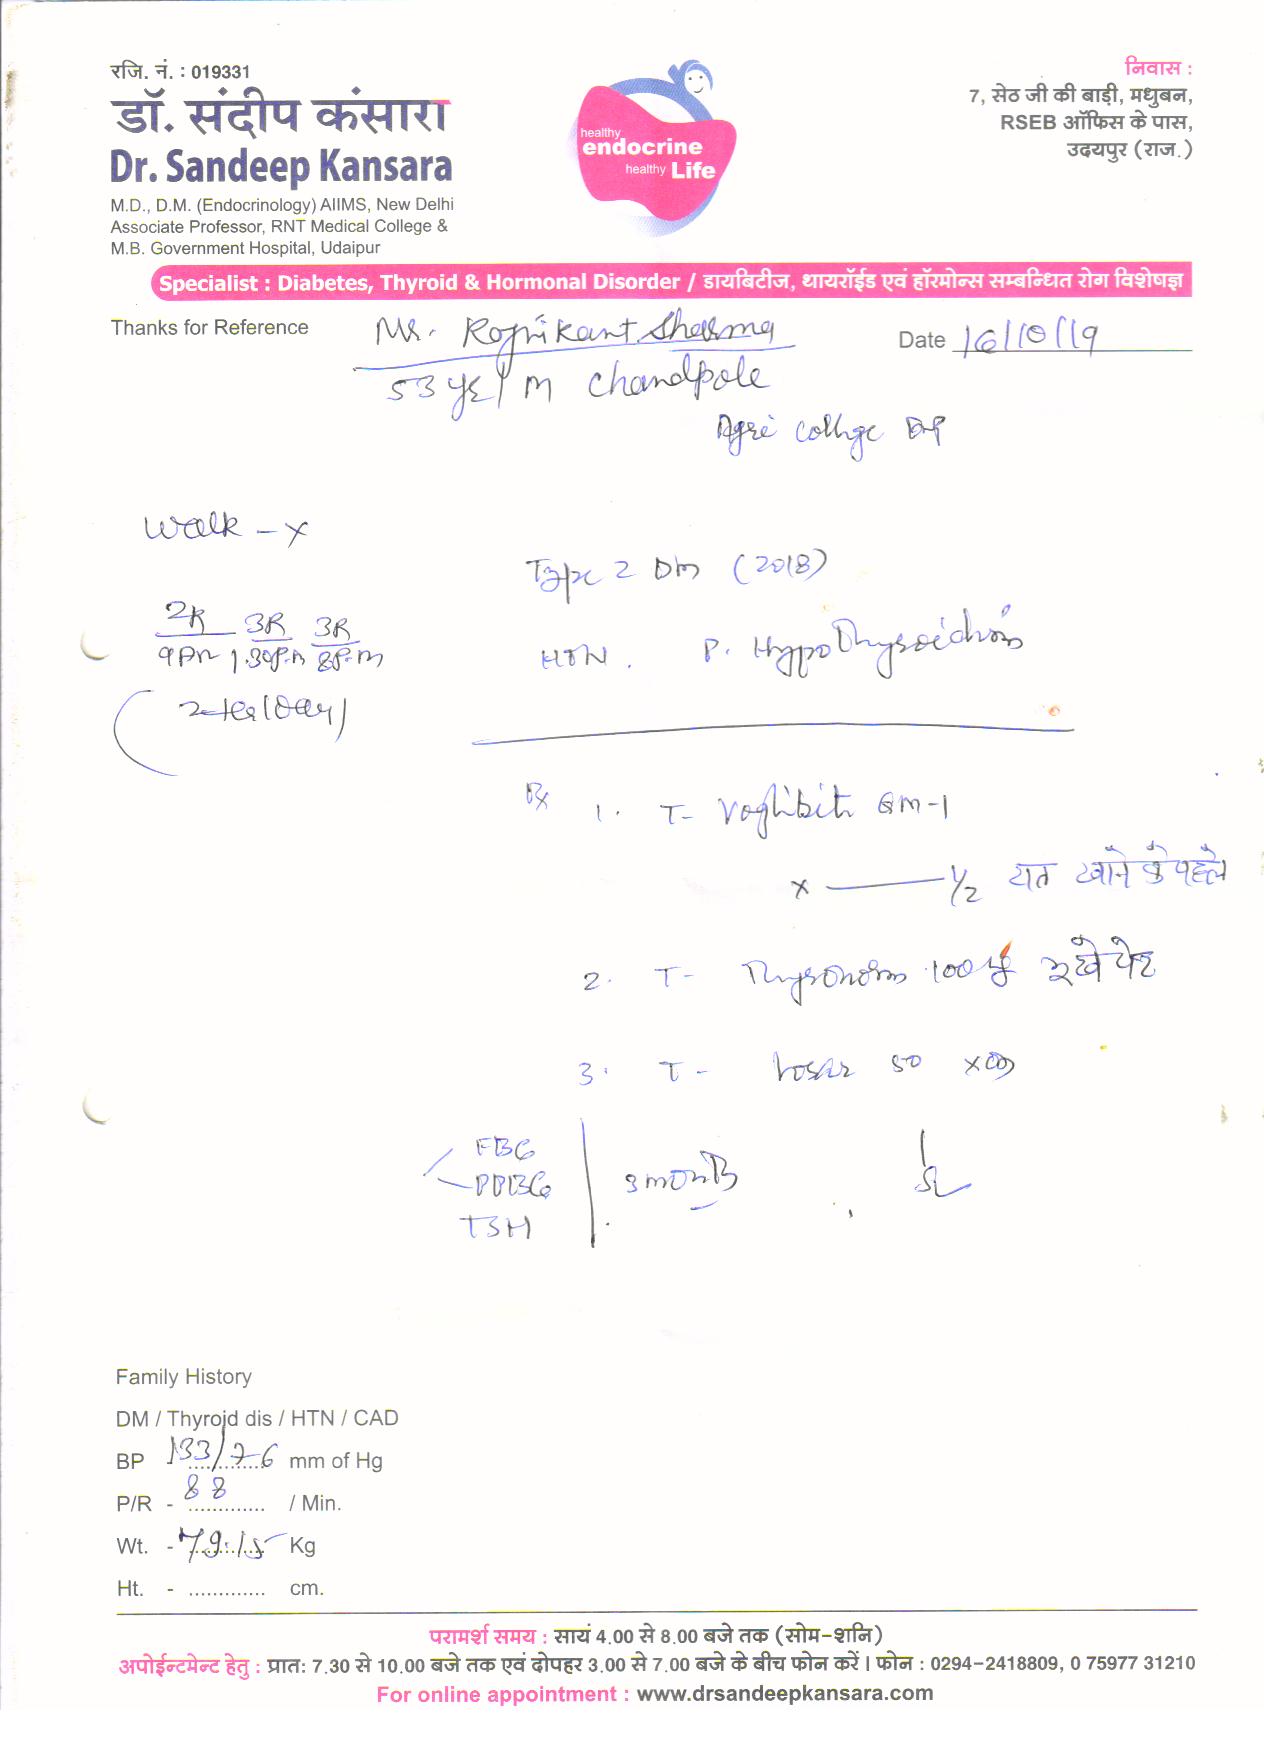 रजि. नं. : 019331
डॉ. संदीप कंसारा
Dr. Sandeep Kansara
M.D., D.M. (Endocrinology) AIIMS, New Delhi
Associate Professor, RNT Medical College &
M.B. Government Hospital, Udaipur
healthy
endocrine
healthy Life
निवास :
7, सेठ जी की बाड़ी, मधुबन,
RSEB ऑफिस के पास,
उदयपुर (राज.)
Specialist : Diabetes, Thyroid & Hormonal Disorder / डायबिटीज, थायरॉईड एवं हॉरमोन्स सम्बन्धित रोग विशेषज्ञ
Thanks for Reference Mr. Rajnikant Sharma Date 16/10/19
53 yr/M Chandpole
Agri College
Walk - x
Type 2 DM (2018)
2R 3R 3R
9Am 1.30P.m 8P.m
HTN. P. Hypothyroidism
2 tea/Day
Rx 1. T- Voglibite GM-1
x 1/2 रात खाने के पहले
2. T- Thyronorm 100 भूखे पेट
3. T- Losar 50
FBG
PPBG 3 months
TSH
Family History
DM / Thyroid dis / HTN / CAD
BP 133/76 mm of Hg
P/R - 88 / Min.
Wt. - 79.15 Kg
Ht. - ............. cm.
परामर्श समय : सायं 4.00 से 8.00 बजे तक (सोम-शनि)
अपोईन्टमेन्ट हेतु : प्रातः 7.30 से 10.00 बजे तक एवं दोपहर 3.00 से 7.00 बजे के बीच फोन करें। फोन : 0294-2418809, 0 75977 31210
For online appointment : www.drsandeepkansara.com